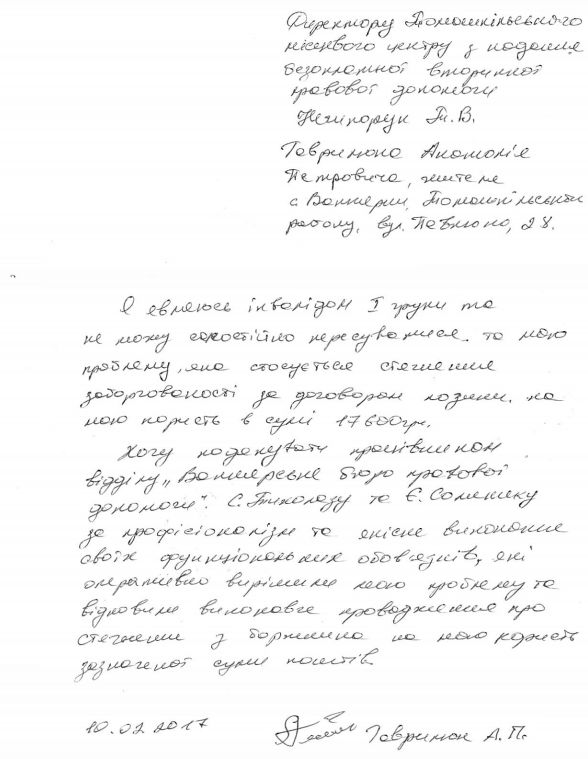 Директору Томашпільського
місцевого центру з надання
безоплатної вторинної
правової допомоги
Нечипорук Т.В.
Гавринюка Анатолія
Петровича, жителя
с. Вапнярки, Томашпільського
району, вул. Павлюка, 28.
Я являюсь інвалідом I групи та
не можу самостійно пересуватися. та мою
проблему, яка стосується стягнення
заборгованості за договором позики. на
мою користь в сумі 17600грн.
Хочу подякувати працівникам
відділу "Вапнярське бюро правової
допомоги". С. та Є.
за професіоналізм та якісне виконання
своїх функціональних обов'язків, які
оперативно вирішили мою проблему та
відновили виконавче провадження про
стягнення з боржника на мою користь
зазначеної суми коштів.
10.02.2017 Гавринюк А.П.